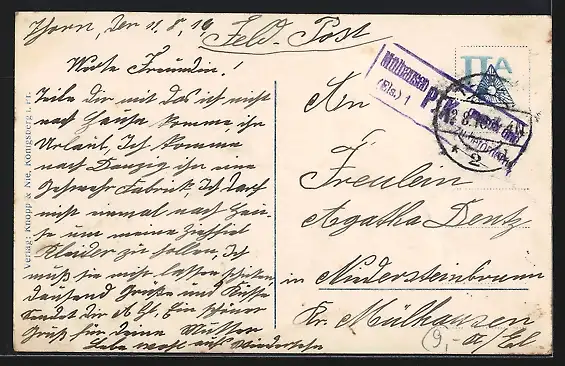 Thorn, den 11.8.16
Feld-Post
Werte Freundin!
Teile dir mit das ich nicht
nach Hause komme, in
Urlaub, Ich komme
nach Danzig in eine
Gewehr Fabrik, Ich darf
nicht einmal nach Hau-
se um meine
Kleider zu holen, Ich
muß sie mir lassen schicken,
tausend Grüße und Küsse
sendet dir A. Ein schöner
Gruß für deine Mutter
Lebe wohl auf Wiedersehn
Verlag: Knopp & Nie, Königsberg i. Pr.
Mülhausen
(Els.) 1
P.K.
2
An
Freulein
Agatha Dentz
in Niedersteinbrunn
Kr. Mülhausen
a/Els
9,-